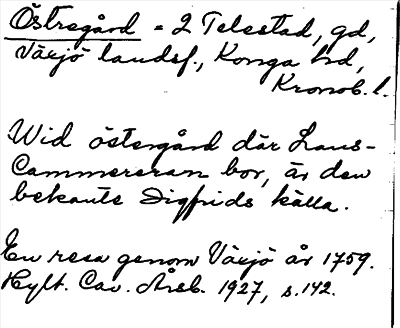 Östregård = 2 Telestad, gd,
Växjö landsf., Konga hd,
Kronob. l.
Wid östergård där Lans-
Cammereraren bor, är den
bekante Sigfrids källa.
En resa genom Växjö år 1759.
Hylt. Cav. Årsb. 1927, s. 142.